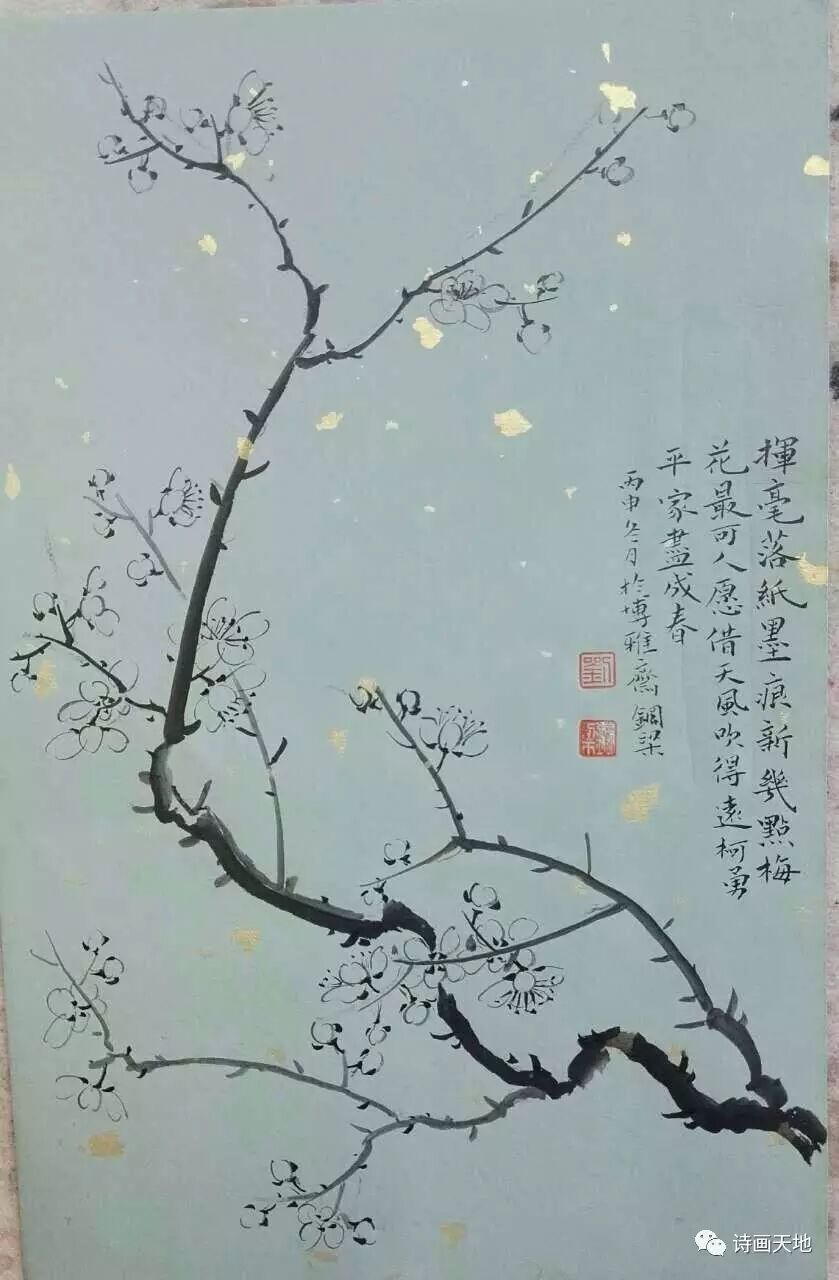 揮毫落紙墨痕新幾點梅
花最可人愿借天風吹得遠柯勇
平家盡成春
丙申冬月於博雅齋鋼梁
劉
诗画天地